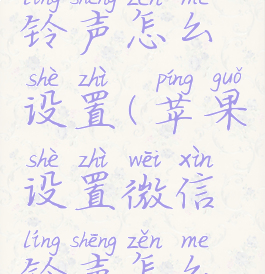 líng shēng zěn me
铃声怎么
shè zhì píng guǒ
设置(苹果
shè zhì wēi xìn
设置微信
líng shēng zěn me
铃声怎么